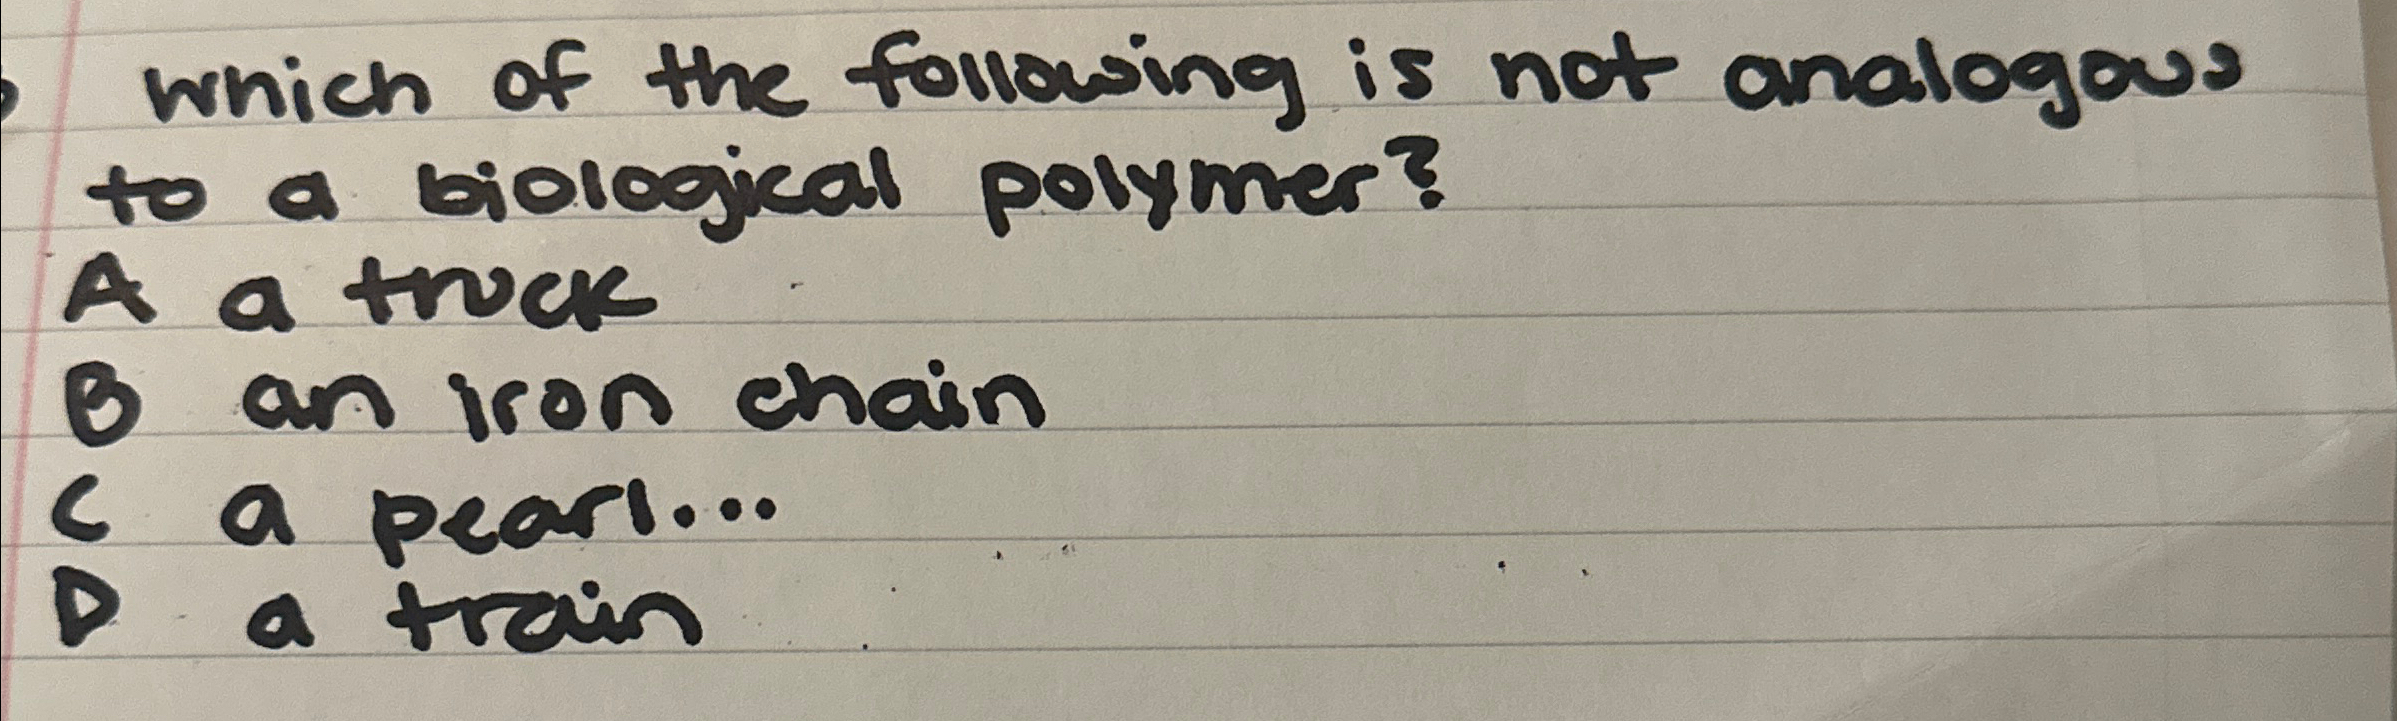 Which of the following is not analogous
to a biological polymer?
A a truck
B an iron chain
C a pearl...
D a train